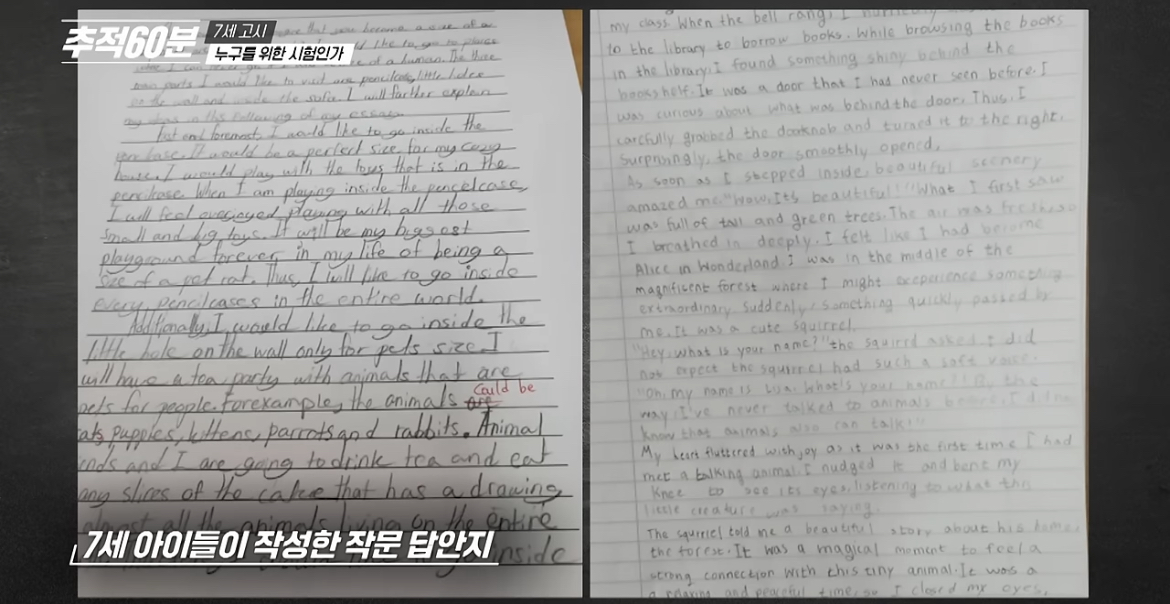 추적60분
7세 고시
누구를 위한 시험인가
that you become a size of a
like to go to places
of a human. The three
main parts I would like to visit are pencilcase, little holes
on the wall and inside the sofa. I will farther explain
my ideas in the following of my essay.
first and foremost, I would like to go inside the
pencilcase. It would be a perfect size for my cozy
house. I would play with the toys that is in the
pencilcase. When I am playing inside the pencelcase,
I will feel overjoyed playing with all those
small and big toys. It will be my biggest
playground forever in my life of being a
size of a pet rat. Thus, I will like to go inside
every pencilcases in the entire world.
Additionally, I would like to go inside the
little hole on the wall only for pets size. I
will have a tea party with animals that are
pets for people. forexample, the animals are could be
cats, puppies, kittens, parrots and rabbits. Animal
and I are going to drink tea and eat
any slices of the cake that has a drawing
almost all the animals living on the entire
inside
my class. When the bell rang, I
to the library to borrow books. While browsing the books
in the library, I found something shiny behind the
bookshelf. It was a door that I had never seen before. I
was curious about what was behind the door. Thus, I
carefully grabbed the dooknob and turned it to the right.
Surprisingly, the door smoothly opened.
As soon as I stepped inside, beautiful scenery
amazed me. "Wow, It's beautiful!" What I first saw
was full of tall and green trees. The air was fresh so
I breathed in deeply. I felt like I had become
Alice in Wonderland. I was in the middle of the
magnificent forest where I might experience something
extraordinary. Suddenly, something quickly passed by
me. It was a cute squirrel.
"Hey, what is your name?" the squirrel asked. I did
not expect the squirrel had such a soft voice.
"Oh, my name is What's your name? By the
way, I've never talked to animals before. I
know that animals also can talk!"
My heart fluttered with joy as it was the first time I had
met a talking animal. I nudged it and bent my
knee to see its eyes, listening to what the
little creature was saying.
The squirrel told me a beautiful story about his home,
the forest. It was a magical moment to feel a
strong connection with this tiny animal. It was a
relaxing and peaceful time, so I closed my eyes,
7세 아이들이 작성한 작문 답안지